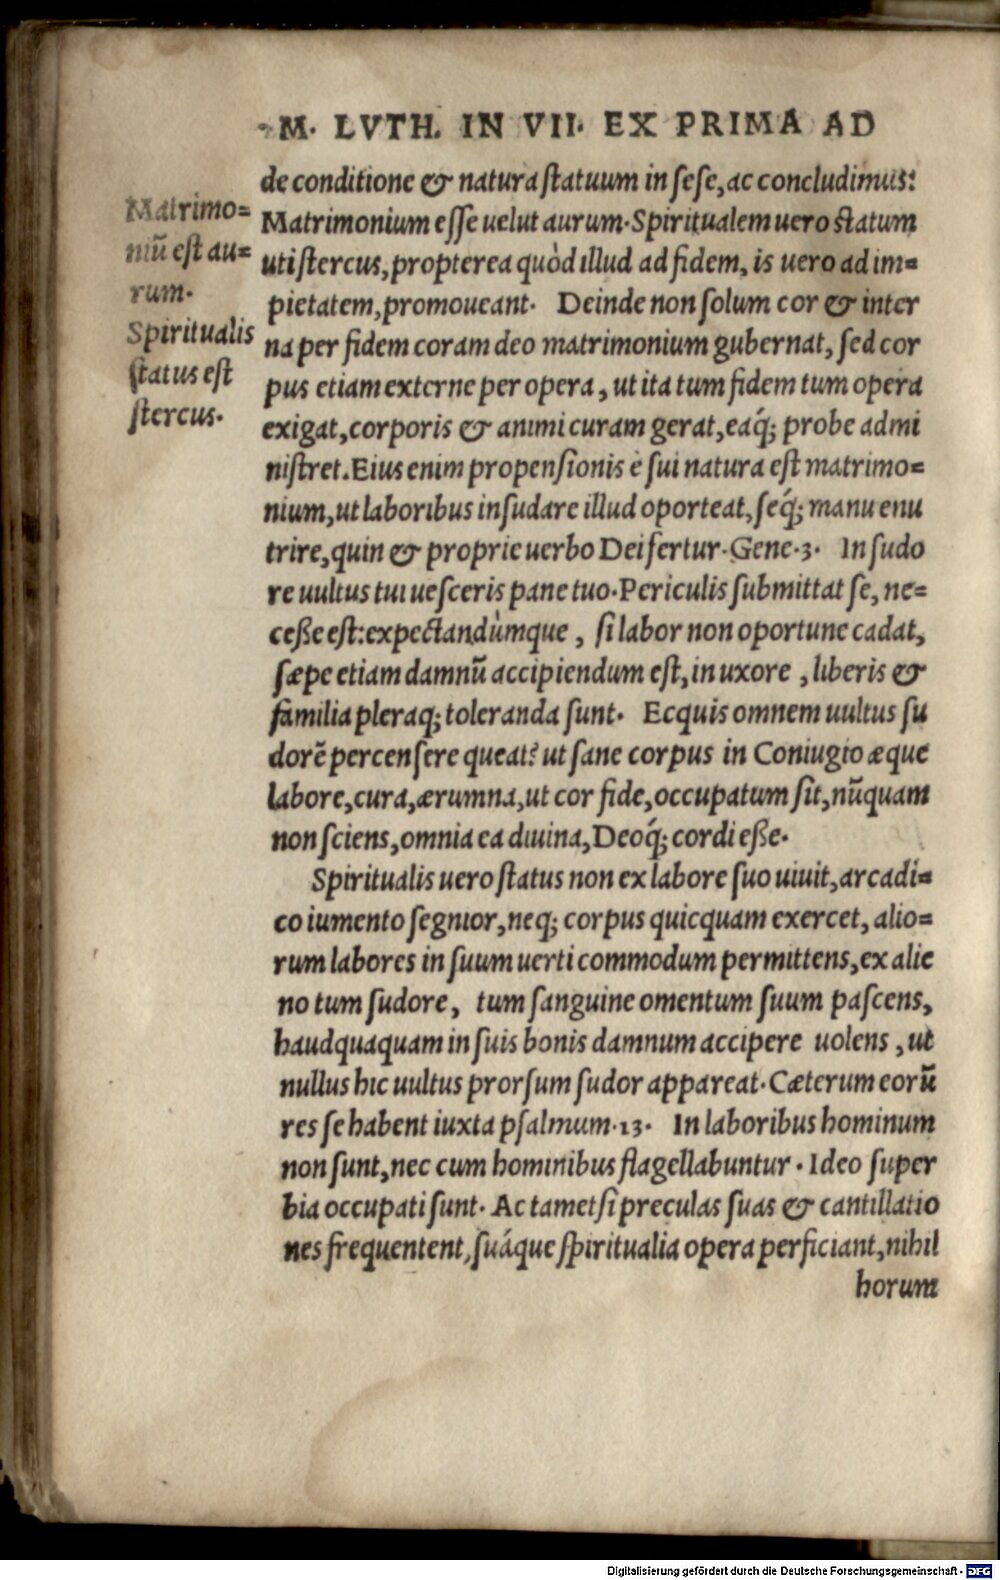 M. LVTH. IN VII. EX PRIMA AD
de conditione & natura ſtatuum in ſeſe, ac concludimus:
Matrimonium eſſe uelut aurum. Spiritualem uero ſtatum
uti ſtercus, propterea quòd illud ad fidem, is uero ad im=
pietatem, promoueant. Deinde non ſolum cor & inter
na per fidem coram deo matrimonium gubernat, ſed cor
pus etiam externe per opera, ut ita tum fidem tum opera
exigat, corporis & animi curam gerat, eaq́; probe admi
niſtret. Eius enim propenſionis è ſui natura eſt matrimo=
nium, ut laboribus inſudare illud oporteat, ſeq́; manu enu
trire, quin & proprie uerbo Dei fertur. Gene. 3. In ſudo
re uultus tui ueſceris pane tuo. Periculis ſubmittat ſe, ne=
ceße eſt: expectandùmque, ſi labor non oportune cadat,
ſæpe etiam damnū accipiendum eſt, in uxore, liberis &
familia pleraq; toleranda ſunt. Ecquis omnem uultus ſu
dorē percenſere queat? ut ſane corpus in Coniugio æque
labore, cura, ærumna, ut cor fide, occupatum ſit, nūquam
non ſciens, omnia ea diuina, Deoq́; cordi eße.
Spiritualis uero ſtatus non ex labore ſuo uiuit, arcadi=
co iumento ſegnior, neq; corpus quicquam exercet, alio=
rum labores in ſuum uerti commodum permittens, ex alie
no tum ſudore, tum ſanguine omentum ſuum paſcens,
haudquaquam in ſuis bonis damnum accipere uolens, ut
nullus hic uultus prorſum ſudor appareat. Cæterum eorū
res ſe habent iuxta pſalmum. 13. In laboribus hominum
non ſunt, nec cum hominibus flagellabuntur. Ideo ſuper
bia occupati ſunt. Ac tametſi preculas ſuas & cantillatio
nes frequentent, ſuáque ſpiritualia opera perficiant, nihil
horum
Matrimo=
niū eſt au=
rum.
Spiritualis
ſtatus eſt
ſtercus.
Digitalisierung gefördert durch die Deutsche Forschungsgemeinschaft - DFG